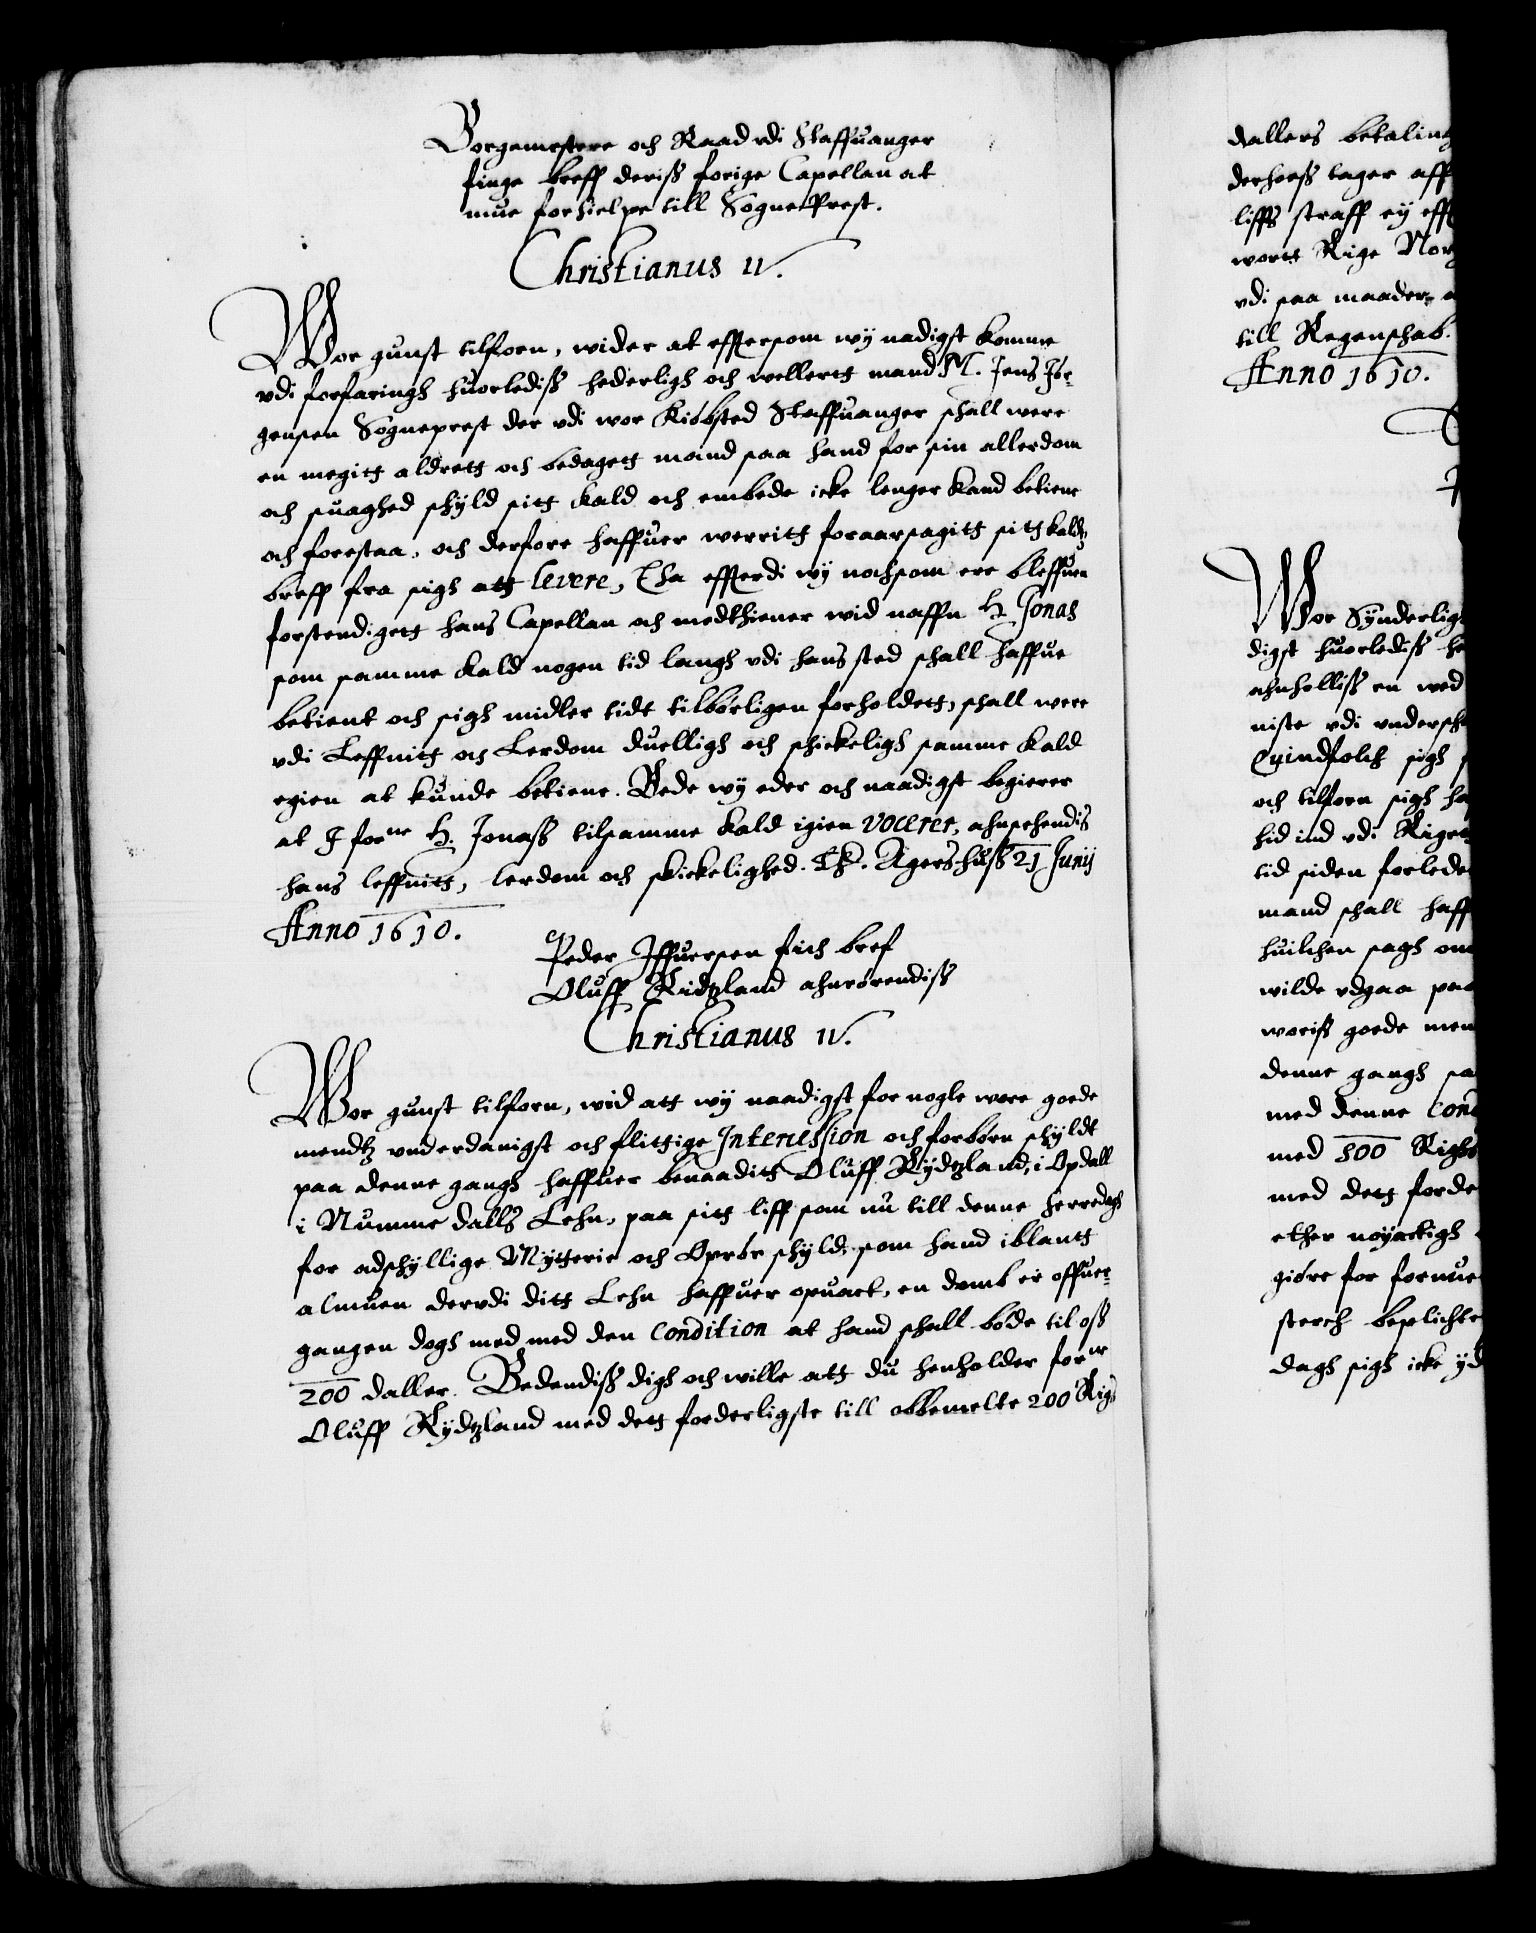 Borgemestere och Raad vdi Staffuanger
finge breff deriß forige Capellan at
mue forhielpe till SognePrest.
Christianus IV.
Wor gunst tilforn, wider at effttersom wÿ nadigst komme
vdi forfaringh huorlediß hederligh och wellertt mand M. Jens Jør-
gensen Sogneprest der vdi wor Kiøbsted Staffuanger schall were
en megitt aldrett och bedagett mand saa hand for sin allerdom
och suaghed schÿld sitt kald och embede icke lenger kand betiene
och forestaa, och derfore haffuer werritt foraarsagitt sitt kaldtz
breff fra sigh att levere, Tha effterdi wÿ nochsom ere bleffuen
forstendigett hans Capellan och medthiener wid naffn H. Jonas
som samme kald nogen tid langh vdi hans sted schall haffue
betient och sigh midler tidt tilbørligen forholdett, schall were
vdi Leffnitt och Lerdom duelligh och schickeligh samme kald
egien at kunde betiene. Bede wÿ eder och naadigst begierer
at J forne H. Jonaß tilsamme kald igien vocerer, ahnsehendis
hans leffnitt, lerdom och skickelighed. Th. Agershuß 21 Junij
Anno 1610.
Peder Iffuersen fich bref
Oluff Ridtzland ahnrørendiß
Christianus IV.
Wor gunst tilforn, wid att wÿ naadigst for nogle wore goede
mendtz vnderdanigst och flittige Intercession och forbørn schÿldt
paa denne gangh haffuer benaaditt Oluff Rÿdtzland, i Opdall
i Numme dalls Lehn, paa sitt liff som nu till denne herredagh
for adschÿllige Mÿtterie och Oprør schÿld, som hand iblantt
almuen dervdi ditt Lehn haffuer opuact, en domb er offuer-
gangen dogh med med den Condition at hand schall bøde til oß
200 daller. Bedendiß digh och wille att du henholder forne
Oluff Rÿdtzland med dett forderligste till obbemelte 200 Rigs
dallers betaling
derhoß tager aff
liffs straff eÿ eff
worts Rige Nor
vdi saa maader a
till Regenschab.
Anno 1610.
Wor Sÿnderlig
digst huorlediß he
ahnholliß en wed
niste vdi vndersch
Quindfolch sigh
och tilforn sigh ha
hid ind vdi Riget
tid siden forlede
mand schall haff
huilchen sagh om
wilde vdgaa paa
woriß goede men
denne gangh sa
med denne Cond
med 300 Rigs
med dett forde
ether nøÿactigh
giøre for fornue
sterch beplichte
dagh sigh icke ÿd